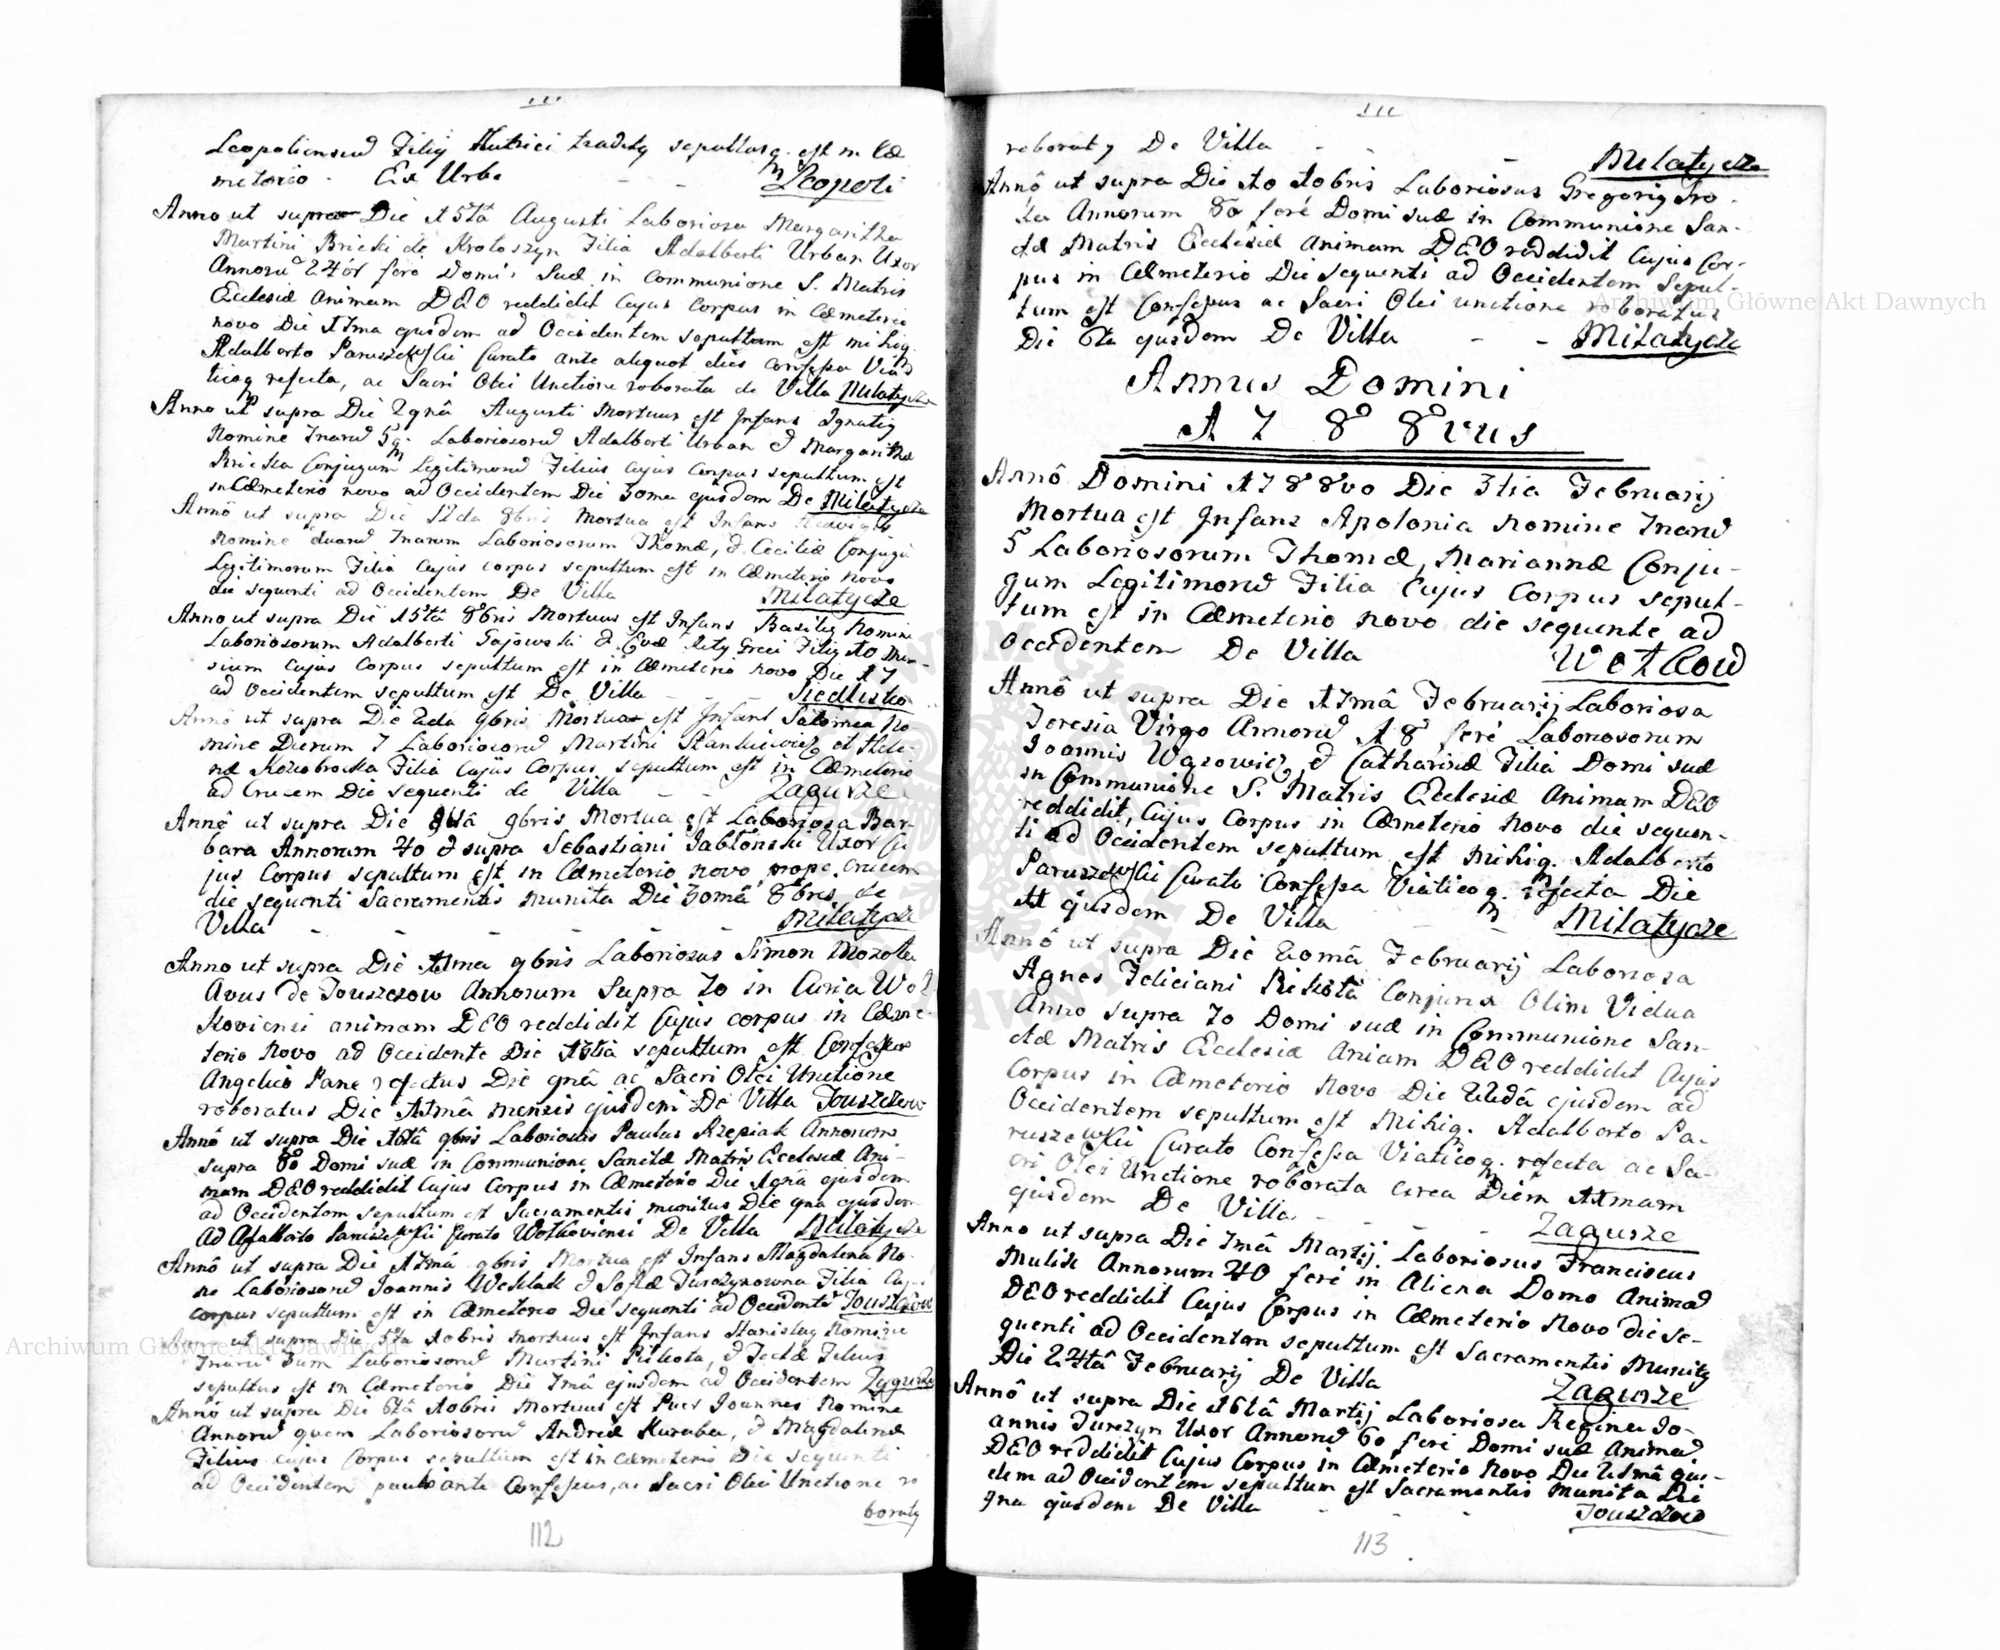 Leopoliensiu Filij Nutrici tradity sepultusq. est in Cæ
meterio. Ex Urbe - - Leopoli
Anno ut supra Die 15tâ Augusti Laboriosa Margaritha
Martini Bricki de Krotoszyn Filia Adalberti Urban Uxor
Annoru 24or feré Domi Suæ in communione S. Matris
Ecclesiæ Animam DEO reddidit Cujus Corpus in Cæmeterio
novo Die 17ma ejusdem ad Occidentem sepultum est mihiq.
Adalberto Paruszewskii Curato ante aliquot dies confessa Viati
ticoq refecta, ac Sacri Olei Unctione roborata de Villa Milatycze
Anno ut supra Die 29nâ Augusti Mortuus est Infans Ignatiy
Nomine 7naru 5q. Laboriosoru Adalberti Urban & Margarithæ
Bricka Conjugum Legitimoru Filius Cujus Corpus sepultum est
in Cæmeterio novo ad Occidentem Die 30ma ejusdem De Milatycze
Annô ut supra Die 12da 8bris Mortua est Infans Hedvigis
Nomine duaru 7narum Laboriosorum Thomæ, & Ceciliæ Conjugu
Legitimorum Filia Cujus corpus sepultum est in Cæmeterio novo
die sequenti ad Occidentem De Villa Milatycze
Anno ut supra Die 15tâ 8bris Mortuus est Infans Basiliy Nomine
Laboriosorum Adalberti Gajowski & Evæ Ritỹ Græci Filiy 10 Men-
sium Cujus Corpus sepultum est in Cæmeterio novo Die 17
ad Occidentem sepultum est De Villa - - - Siedlisko
Annô ut supra Die 2da 9bris Mortua est Infans Salomea No-
mine Dierum 7 Laboriosoru Martini Stankiewicz et Hele-
næ Kozobrocka Filia Cujus Corpus sepultum est in Cæmeterio
ad Crucem Die sequenti de Villa - - Zagurze
Annô ut supra Die 9bris Mortua est Laboriosa Bar-
bara Annorum 40 & supra Sebastiani Jabłonski Uxor Cu
jus Corpus sepultum est in Cæmeterio novo prope Crucem
die sequenti Sacramentis munita Die 30mâ 8bris de
Villa - - - - - - Milatycze
Anno ut supra Die 11ma 9bris Laboriosus Simon Mozola
Avus de Touszczow Annorum Supra 70 in Curia Woł
koviensi animam DEO reddidit Cujus corpus in Cæme-
terio Novo ad Occidente Die 13tiâ sepultum est Confessus
Angelico Pane refectus Die 9nâ ac Sacri Olei Unctione
roboratus Die 11mâ mensis ejusdem De Villa Touszczow
Annô ut supra Die 16tâ 9bris Laboriosus Paulus Rzepiak Annorum
supra 80 Domi suæ in Communione Sanctæ Matris Ecclesiæ Ani-
mam DEO reddidit Cujus Corpus in Cæmeterio Die 19nâ ejusdem
ad Occidentem sepultum est Sacramentis munitus Die 9na ejusdem
Ad Adalberto Paruszewskii Curato Wołkoviensi De Villa Milatycze
Annô ut supra Die 17mâ 9bris Mortua est Infans Magdalena No-
ne Laboriosoru Joannis Weklak & Sofiæ Turczynowna Filia Cujus
corpus sepultum est in Cæmeterio Die sequenti ad Occidente Touszczow
Anno ut supra Die 5ta Xobris mortuus est Infans Stanislaỹ Nomine
7naru 3um Laboriosoru Martini Pikiota, & Teclæ Filius
sepultus est in Cæmeterio Die 7mâ ejusdem ad Occidentem Zagurze
Annô ut supra Die 6tâ Xobris Mortuus est Puer Joannes Nomine
Annoru quem Laboriosoru Andreæ Kuraba, & Magdalenæ
Filius cujus Corpus sepultum est in cæmeterio Die sequenti
ad Occidentem paulo ante Confessus, ac Sacri Olei Unctione ro
boraty
112
roboraty De Villa - - - Milatycze
Annô ut supra Die 10 Xobris Laboriosus Gregoriy
Annorum 80 feré Domi suæ in Communione San-
ctæ Matris Ecclesiæ Animam DEO reddidit Cujus Cor-
pus in Cæmeterio Die sequenti ad Occidentem Sepul-
tum est Confessus ac Sacri Olei unctione roboratus
Die 6ta ejusdem De Villa - - Milatycze
Annus Domini
1788vus
Annô Domini 1788vo Die 3tia Februarij
Mortua est Infans Apolonia Nomine 7naru
5 Laboriosorum Thomæ, Mariannæ Conju-
gum Legitimoru Filia Cujus Corpus sepul-
tum est in Cæmeterio novo die sequente ad
Occidentem De Villa Wołkow
Annô ut supra Die 17mâ Februarij Laboriosa
Teresia Virgo Annoru 18 feré Laboriosorum
Joannis Wąsowicz & Catharinæ Filia Domi suæ
in Communione S. Matris Ecclesiæ Animam DEO
reddidit, Cujus Corpus in Cæmeterio Novo die sequen-
ti ad Occidentem sepultum est Mihiq. Adalberto
Paruszewskii Curato Confessa Viaticoq. refecta Die
11 ejusdem De Villa - - Milatycze
Annô ut supra Die 20mâ Februarij Laboriosa
Agnes Feliciani Conjunx Olim Vidua
Anno supra 70 Domi suæ in Communione San-
ctæ Matris Ecclesiæ Aniam DEO reddidit Cujus
Corpus in Cæmeterio Novo Die 22dâ ejusdem ad
Occidentem sepultum est Mihiq. Adalberto Pa-
ruszewskii Curato Confessa Viaticoq. refecta ac Sa-
cri Olei Unctione roborata circa Diem 11mam
ejusdem De Villa - - - Zagurze
Anno ut supra Die 7mâ Martij Laboriosus Franciscus
Mulik Annorum 40 feré in Aliena Domo Animâ
DEO reddidit Cujus Corpus in Cæmeterio Novo die se-
quenti ad Occidentem sepultum est Sacramentis Munity
Die 24tâ Februarij De Villa Zagurze
Annô ut supra Die 16tâ Martij Laboriosa Regina Jo-
annis Turczyn Uxor Annoru 60 feré Domi suæ Animâ
DEO reddidit Cujus Corpus in Cæmeterio Novo Die 21mâ ejus-
dem ad Occidentem sepultum est Sacramentis Munita Die
9na ejusdem De Villa - - - Touszczow
113
Archiwum Główne Akt Dawnych
Archiwum Główne Akt Dawnych